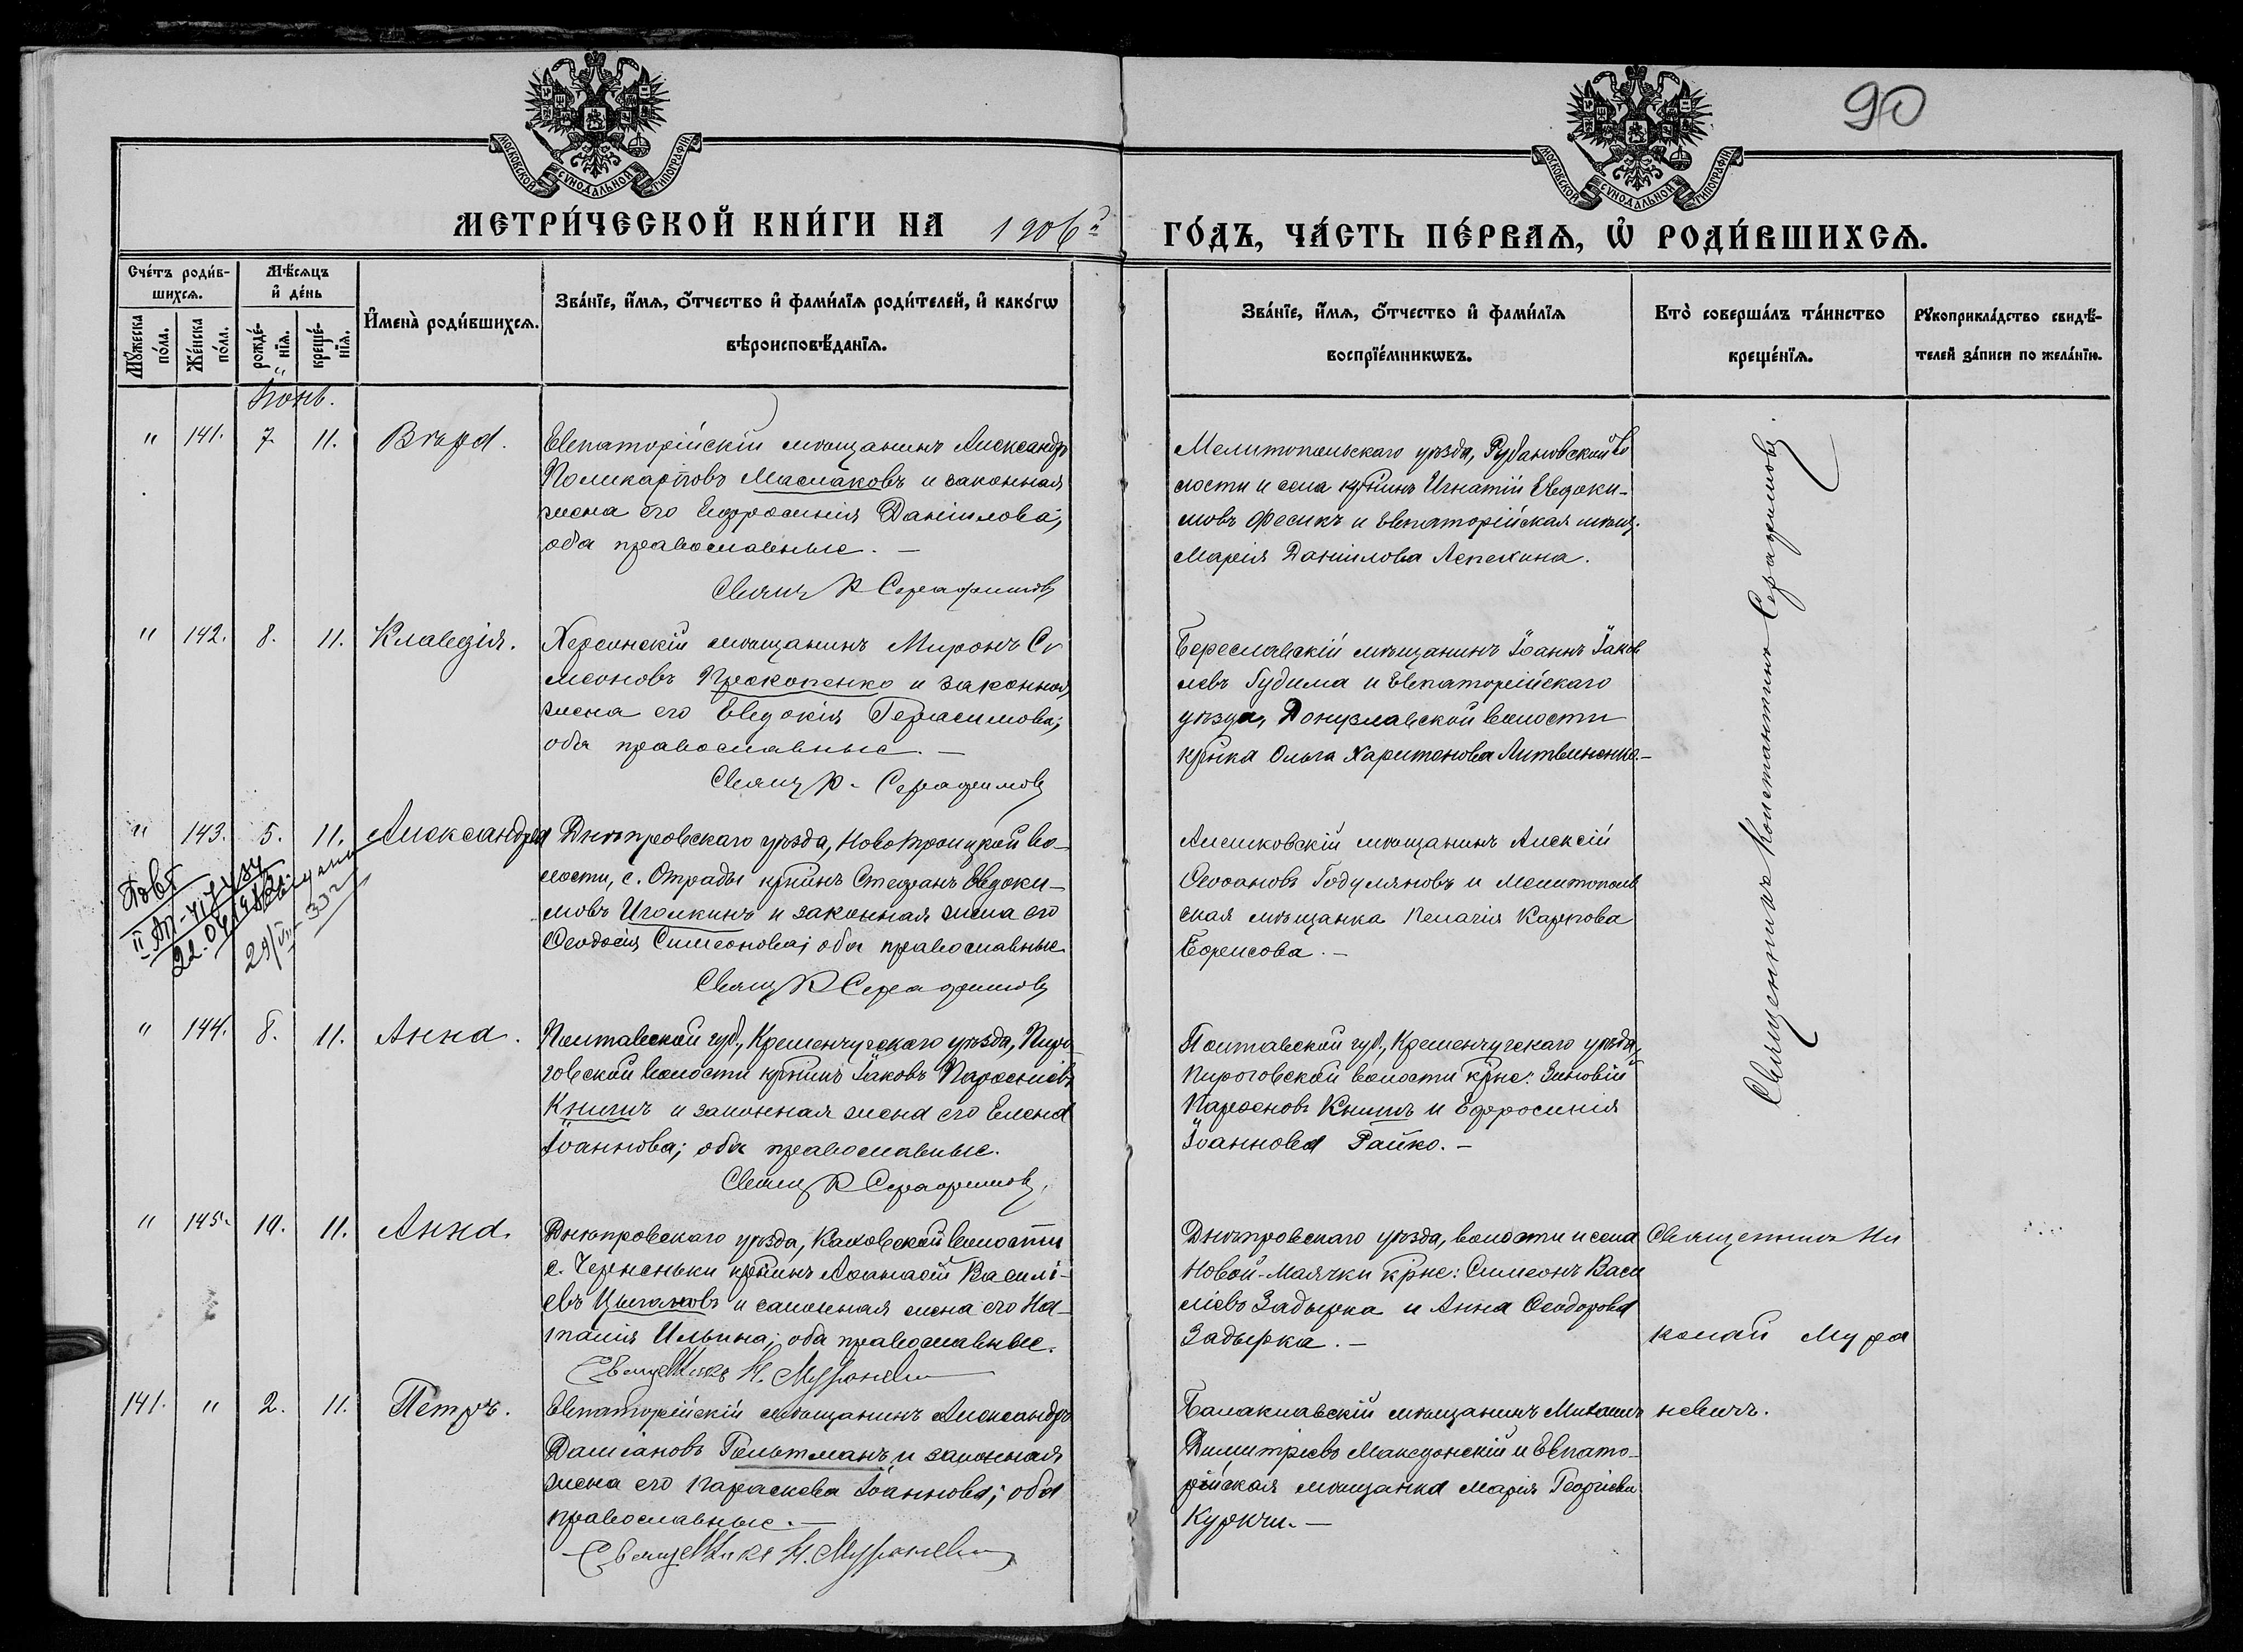 90
МОСКОВСКОЙ СУНОДАЛЬНОЙ ТИПОГРАФІИ
МОСКОВСКОЙ СУНОДАЛЬНОЙ ТИПОГРАФІИ
МЕТРИ́ЧЕСКОЙ КНИ́ГИ НА 1906 г
ГО́ДЪ, ЧА́СТЬ ПЕ́РВАѦ, Ѡ҆ РОДИ́ВШИХСѦ.
Сче́тъ роди́в-
шихсѧ.
Мꙋ́жеска по́ла.
Же́нска по́ла.
Мѣ́сѧцъ
и҆ де́нь
рожде́-
нїѧ.
креще́-
нїѧ.
И҆мена̀ роди́вшихсѧ.
Зва́нїе, и҆́мѧ, ѻ҆́тчество и҆ фами́лїѧ роди́телей, и҆ како́гѡ
вѣроисповѣ́данїѧ.
Зва́нїе, и҆́мѧ, ѻ҆́тчество и҆ фами́лїѧ
воспрїе́мникѡвъ.
Кто̀ соверша́лъ та́инство
креще́нїѧ.
Рꙋкоприкла́дство свидѣ́-
телей за́писи по жела́нїю.
Іюнь.
" 141. 7. 11. Вѣра.
Евпаторійскій мѣщанинъ Александръ
Поликарповъ Маслаковъ и законная
жена его Евфросинія Даніилова;
оба православные. —
Свящ К Серафимовъ
Мелитопольскаго уѣзда, Рубановской во
лости и села кр-нинъ Игнатій Евдоки-
мовъ Фесикъ и Евпаторійская мѣщ.
Марія Даніилова Лепехина.
Священникъ Константинъ Серафимовъ
" 142. 8. 11. Клавдія.
Херсонскій мѣщанинъ Миронъ Си
меоновъ Прокопенко и законная
жена его Евдокія Герасимова;
оба православные. —
Свящ К. Серафимовъ
Береславскій мѣщанинъ Іоаннъ Іаков
левъ Гудима и Евпаторійскаго
уѣзда, Донузлавской волости
кр-нка Ольга Харитонова Литвиненко. —
" 143. 5. 11. Александра
Днѣпровскаго уѣзда, Новотроицкой во-
лости, с. Отрады кр-нинъ Стефанъ Евдоки-
мовъ Иголкинъ и законная жена его
Ѳеодосія Симеонова; оба православные
Свящ К Серафимовъ
Алешковскій мѣщанинъ Алексій
Ѳеофановъ Годуляновъ и Мелитополь
ская мѣщанка Пелагія Карпова
Борисова. —
" 144. 8. 11. Анна.
Полтавской губ., Кременчугскаго уѣзда, Пиро-
говской волости кр-нинъ Іаковъ Парѳеніевъ
Книшъ и законная жена его Елена
Іоаннова; оба православные.
Свящ К Серафимовъ.
Полтавской губ., Кременчугскаго уѣзда,
Пироговской волости кр-не: Зиновій
Парѳеновъ Книшъ и Ефросинія
Іоаннова Райко. —
" 145. 10. 11. Анна.
Днѣпровскаго уѣзда, Каховской волости
с. Черненьки кр-нинъ Аѳанасій Василі-
евъ Цыгановъ и законная жена его На-
талія Ильина; оба православные.
Священникъ Н. Мураневичъ
Днѣпровскаго уѣзда, волости и села
Новой-Маячки кр-не: Симеонъ Васи
ліевъ Задырка и Анна Ѳеодорова
Задырка. —
Священникъ Ни
колай Мура
невичъ.
141. " 2. 11. Петръ.
Евпаторійскій мѣщанинъ Александръ
Даміановъ Гельтманъ и законная
жена его Параскева Іоаннова; оба
православные. —
Священникъ Н. Мураневичъ
Балаклавскій мѣщанинъ Михаилъ
Димитріевъ Македонскій и Евпато-
рійская мѣщанка Марія Георгіева
Куркчи. —